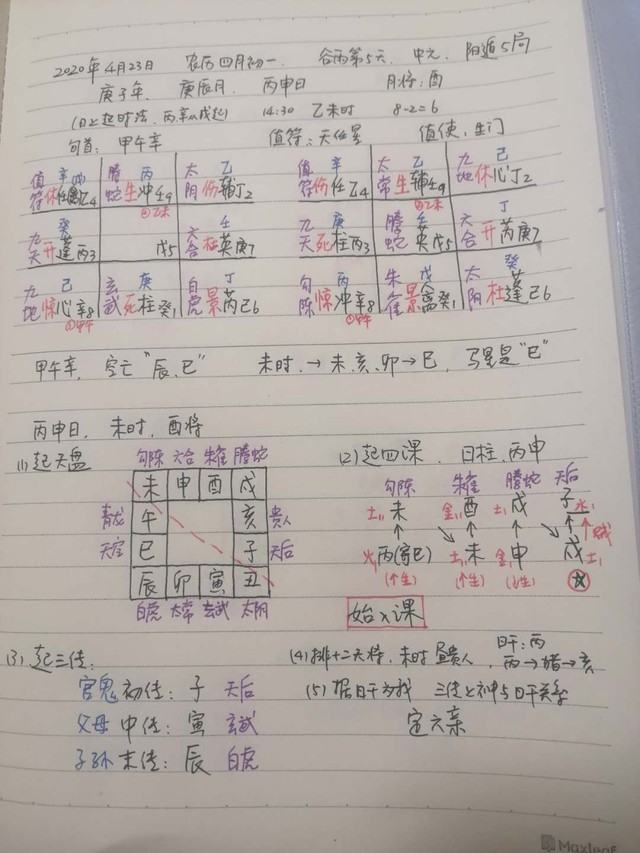 2020年4月23日 农历四月初一 谷雨第5天, 中元, 阳遁5局
庚子年, 庚辰月, 丙申日 月将:酉
(日上起时法,丙辛从戊起) 14:30 乙未时 8-2=6
旬首: 甲午辛 值符:天任星 值使:生门
值 辛 螣 丙 太 乙 值 辛 太 乙 九 己
蛇生冲壬9 阴伤辅丁2 符伤任乙4 常生辅壬9 地休心丁2
①乙未 ①乙未
九 癸 六 壬 九 庚 螣 壬 六 丁
天开蓬丙3 戊5 合杜英庚7 天死柱丙3 蛇 英戊5 合开芮庚7
九 己 玄 庚 白 丁 勾 丙 朱 戊 太 癸
地惊心辛8 武死柱癸1 虎景芮己6 陈惊冲辛8 雀景禽癸1 阴杜蓬己6
①甲午 ①甲午
甲午辛, 空亡“辰、巳” 未时,→未,亥,卯→巳, 马星是“巳”
丙申日, 未时, 酉将
(1)起天盘
勾陈 六合 朱雀 螣蛇
未 申 酉 戌
青龙 午 亥 贵人
天空 巳 子 天后
辰 卯 寅 丑
白虎 太常 玄武 太阴
(2)起四课, 日柱,丙申
勾陈 朱雀 螣蛇 天后
土1 未 金1 酉 土1 戌 子 水1
火1 丙(寄巳) 土1 未 金1 申 戌 土1
(个生) (个生) (个生)
贼
始入课
(3)起三传:
官鬼初传: 子 天后
父母中传: 寅 玄武
子孙末传: 辰 白虎
(4)排十二天将,未时昼贵人, 日干:丙
丙→猪→亥
(5)据日干为我 三传上神与日干关系
定六亲
Maxleaf